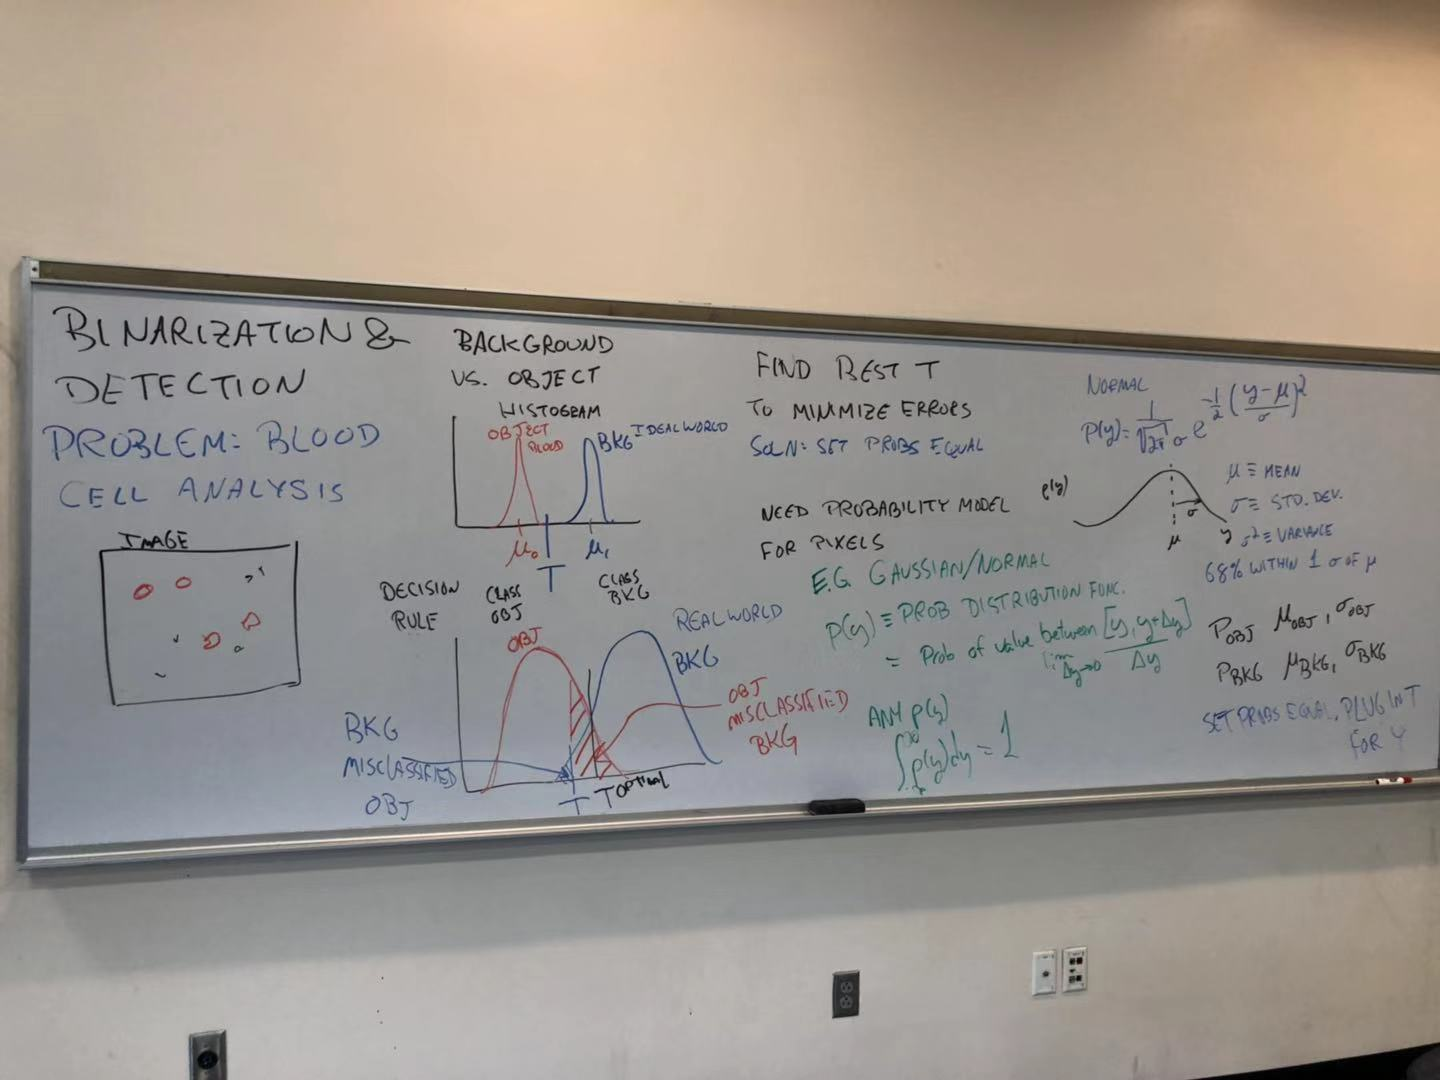 BINARIZATION &
DETECTION
PROBLEM: BLOOD
CELL ANALYSIS
IMAGE
BACKGROUND
VS. OBJECT
HISTOGRAM
OBJECT
BLOOD
BKG IDEAL WORLD
μ₀ T μ₁
DECISION
RULE
CLASS
OBJ
CLASS
BKG
OBJ
REAL WORLD
BKG
BKG
MISCLASSIFIED
OBJ
OBJ
MISCLASSIFIED
BKG
T T OPTIMAL
FIND BEST T
TO MINIMIZE ERRORS
SOLN: SET PROBS EQUAL
NEED PROBABILITY MODEL
FOR PIXELS
E.G. GAUSSIAN/NORMAL
p(y) ≡ PROB DISTRIBUTION FUNC.
= Prob of value between [y, y+Δy]
lim Δy→0 Δy
ANY p(y)
∫ p(y)dy = 1
∞
NORMAL
p(y) = 1/(√2π σ) e^(-1/2 ((y-μ)/σ)²)
p(y)
σ
μ
y
μ ≡ MEAN
σ ≡ STD. DEV.
σ² ≡ VARIANCE
68% WITHIN 1 σ OF μ
P_OBJ μ_OBJ, σ_OBJ
P_BKG μ_BKG, σ_BKG
SET PROBS EQUAL, PLUG IN T
FOR Y